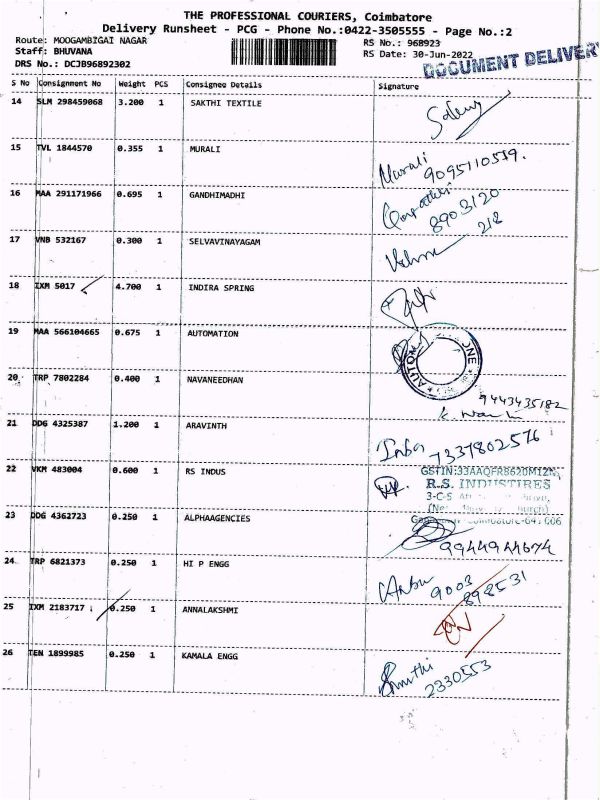 THE PROFESSIONAL COURIERS, Coimbatore
Delivery Runsheet - PCG - Phone No.:0422-3505555 - Page No.:2
Route: MOOGAMBIGAI NAGAR
RS No.: 968923
Staff: BHUVANA
RS Date: 30-Jun-2022
DRS No.: DCJB96892302
DOCUMENT DELIVERY
S No Consignment No Weight PCS Consignee Details Signature
14 SLM 298459068 3.200 1 SAKTHI TEXTILE
15 TVL 1844570 0.355 1 MURALI
Murali
9095110559.
16 MAA 291171966 0.695 1 GANDHIMADHI
8903120
212
17 VNB 532167 0.300 1 SELVAVINAYAGAM
18 IXM 5017 4.700 1 INDIRA SPRING
19 MAA 566104665 0.675 1 AUTOMATION
20 TRP 7802284 0.400 1 NAVANEEDHAN
9443435182
21 DDG 4325387 1.200 1 ARAVINTH
Inba 7337802576
22 VKM 483004 0.600 1 RS INDUS
GSTIN:33AAQFR8620M1ZN
R.S. INDUSTIRES
3-C-5
23 DDG 4362723 0.250 1 ALPHAAGENCIES
9944944674
24 TRP 6821373 0.250 1 HI P ENGG
Anbu 9003
898531
25 IXM 2183717 0.250 1 ANNALAKSHMI
26 TEN 1899985 0.250 1 KAMALA ENGG
2330553